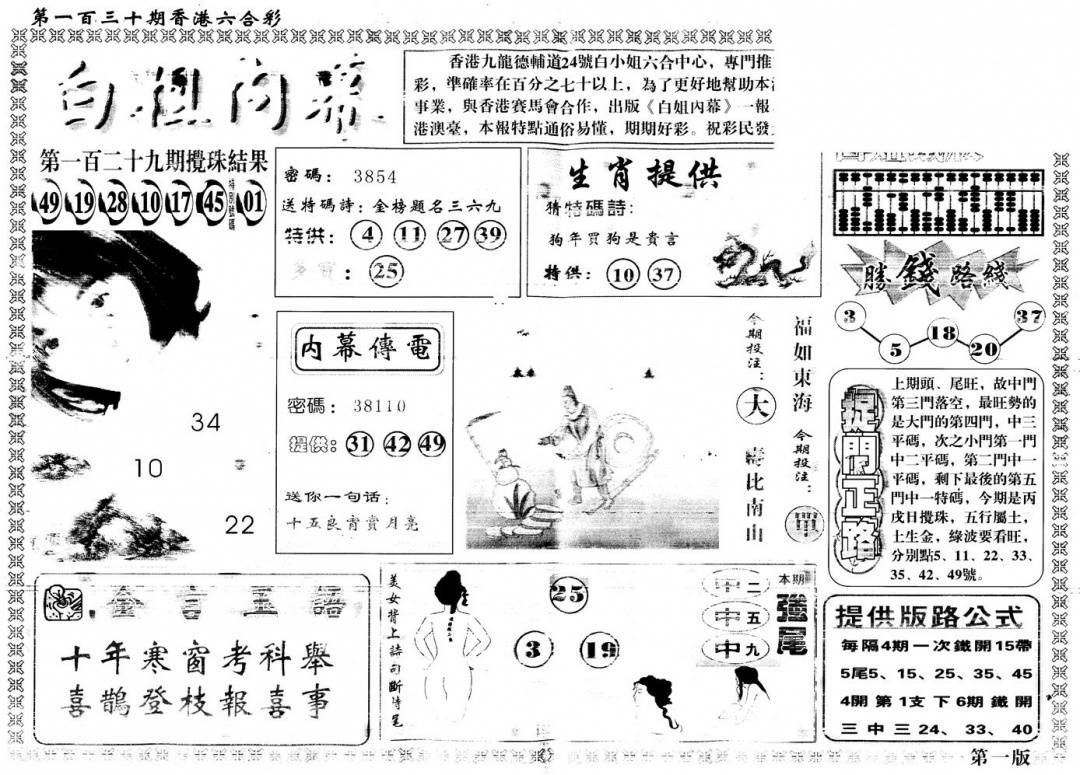 第一百三十期香港六合彩
白姐內幕
香港九龍德輔道24號白小姐六合中心，專門推
彩，準確率在百分之七十以上，為了更好地幫助本
事業，與香港賽馬會合作，出版《白姐內幕》一報
港澳臺，本報特點通俗易懂，期期好彩。祝彩民發
第一百二十九期攪珠結果
49 19 28 10 17 45 特別號碼 01
34
10
22
密碼： 3854
送特碼詩：金榜題名三六九
特供： 4 11 27 39
： 25
生肖提供
猜特碼詩：
狗年買狗是貴言
特供： 10 37
勝錢路綫
3 5 18 20 37
内幕傳電
密碼： 38110
提供： 31 42 49
送你一句话：
十五良宵賞月亮
福如東海
今期投注：
大
壽比南山
今期投注：
單
捉門正路
上期頭、尾旺，故中門
第三門落空，最旺勢的
是大門的第四門，中三
平碼，次之小門第一門
中二平碼，第二門中一
平碼，剩下最後的第五
門中一特碼，今期是丙
戌日攪珠，五行屬土，
土生金，綠波要看旺，
分別點5、11、22、33、
35、42、49號。
金言玉語
十年寒窗考科舉
喜鵲登枝報喜事
美女背上詩句斷特笔
25
3 19
本期強尾
中二
中五
中九
提供版路公式
每隔4期一次鐵開15帶
5尾5、15、25、35、45
4開第1支下6期鐵開
三中三24、33、40
第一版